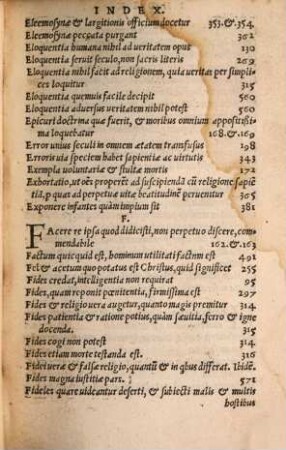 INDEX.
Eleemosynæ & largitionis officium docetur 353. & .354.
Eleemosynæ peccata purgant 362
Eloquentia humana nihil ad veritatem opus 130
Eloquentia servit seculo, non sacris literis 269.
Eloquentia nihil facit ad religionem, quia veritas per simpli
ces loquitur 315
Eloquentia quemuis facile decipit 560
Eloquentia adversus veritatem nihil potest 560
Epicuri doctrina quæ fuerit, & moribus omnium appositißi-
ma loquebatur 168. & .169
Error unius seculi in omnem ætatem transfusus 198
Erroris uia speciem habet sapientiæ ac virtutis 343
Exempla voluntariæ & stultæ mortis 172
Exhortatio, ut oẽs properẽt ad suscipiendã cũ religione sapiẽ
tiã, p quat ad perpetuæ uitæ beatitudinẽ perueniũt 365
Exponere infantes quàm impium sit 381
F.
FAcere re ipsa quod didicisti, non perpetuo discere, com-
mendabile 162. & .163
Factum quicquid est, hominum utilitati factum est 491
Fel & acetum quo potatus est Christus, quid significet 255
Fides credat, intelligentia non requirat 95
Fides, quam reponit pœnitentia, firmissima est 297
Fides & religio uera augetur, quanto magis premitur 314
Fides patientia & ratione potius, quàm sæuitia, ferro & igne
docenda. 315
Fides cogi non potest 314
Fides etiam morte testanda est. 316
Fidei ueræ & falsæ religio, quantũ & in qbus differat. Ibidẽ.
Fides magna iustitiæ pars. 571
Fideles quare uideantur deserti, & subiecti malis & multis
hostibus